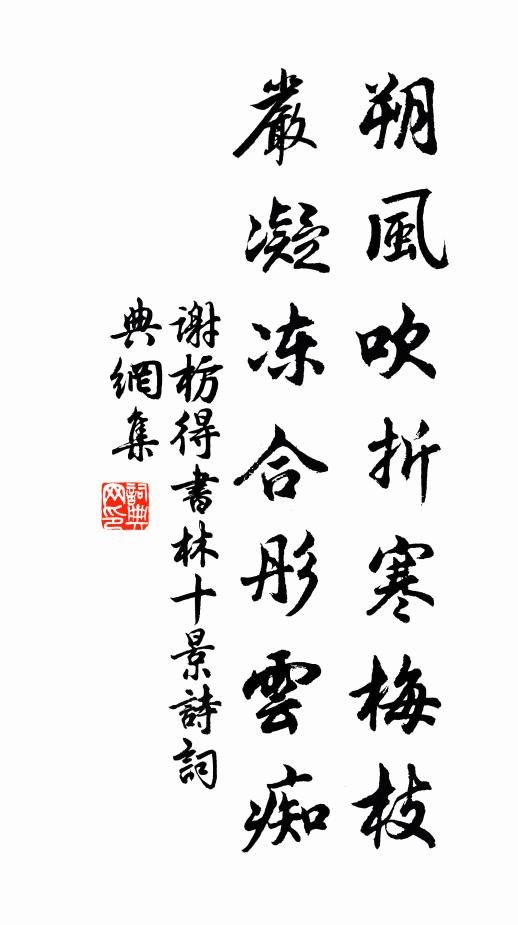 朔風吹折寒梅枝
嚴凝冻合彤雲痴
謝枋得書林十景詩詞
典網集
詞典
网印